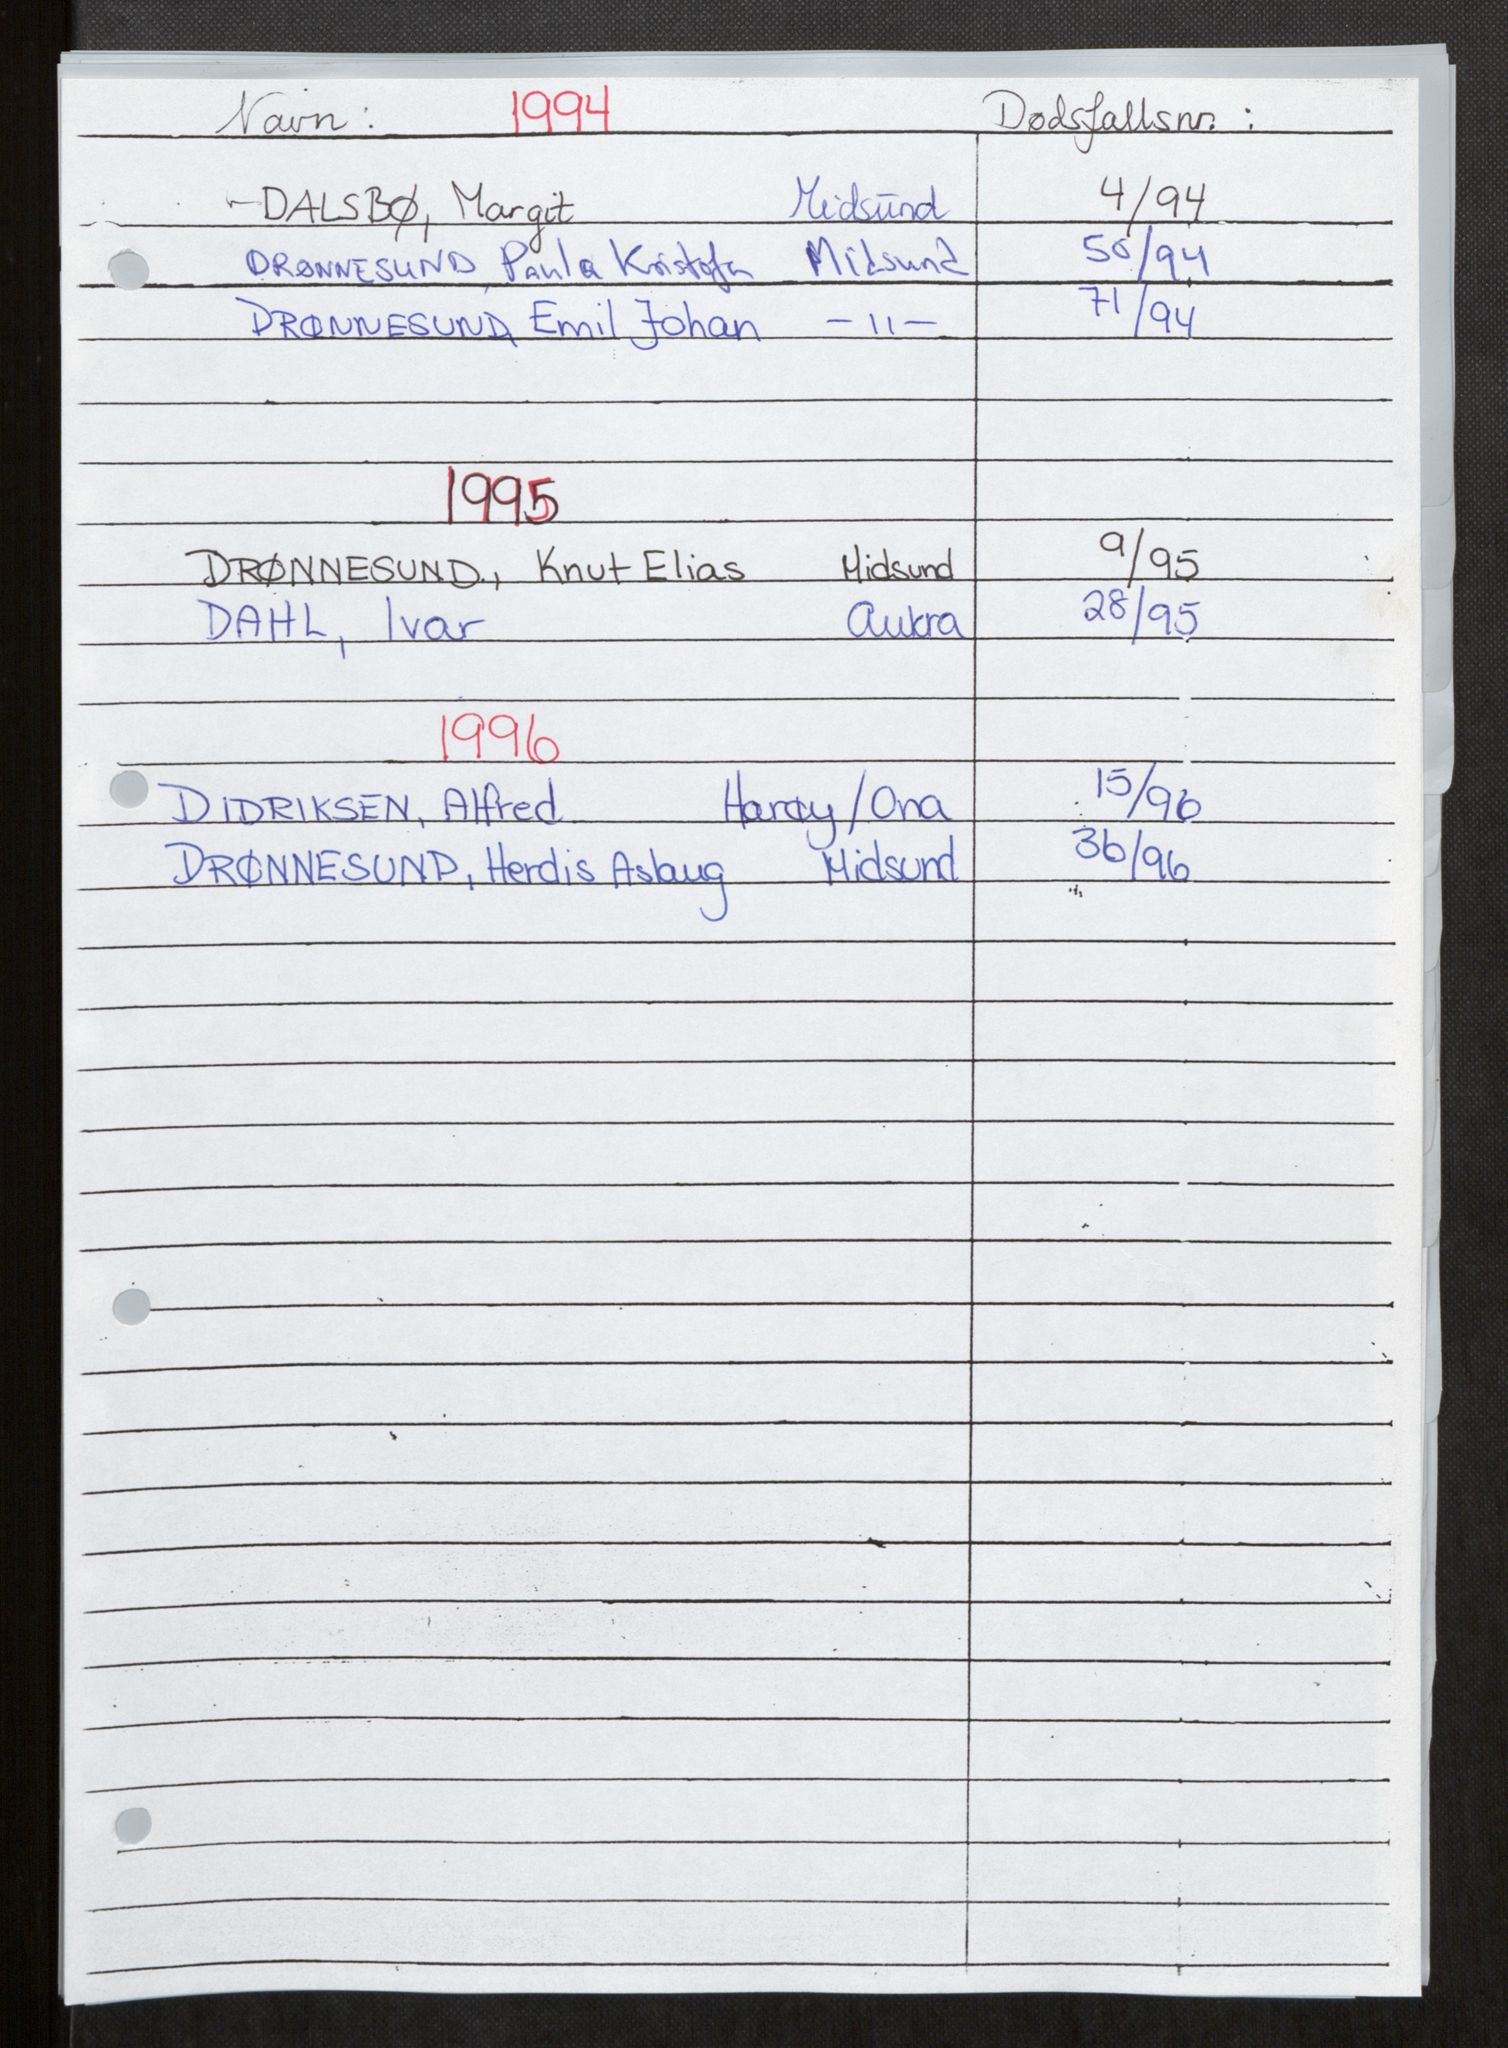 Navn: 1994 Dødsfallsnr.:
-DALSBØ, Margit Midsund 4/94
DRØNNESUND, Paula Kristofa Midsund 50/94
DRØNNESUND, Emil Johan -11- 71/94
1995
DRØNNESUND, Knut Elias Midsund 9/95
DAHL, Ivar Aukra 28/95
1996
DIDRIKSEN, Alfred Harøy/Ona 15/96
DRØNNESUND, Herdis Aslaug Midsund 36/96